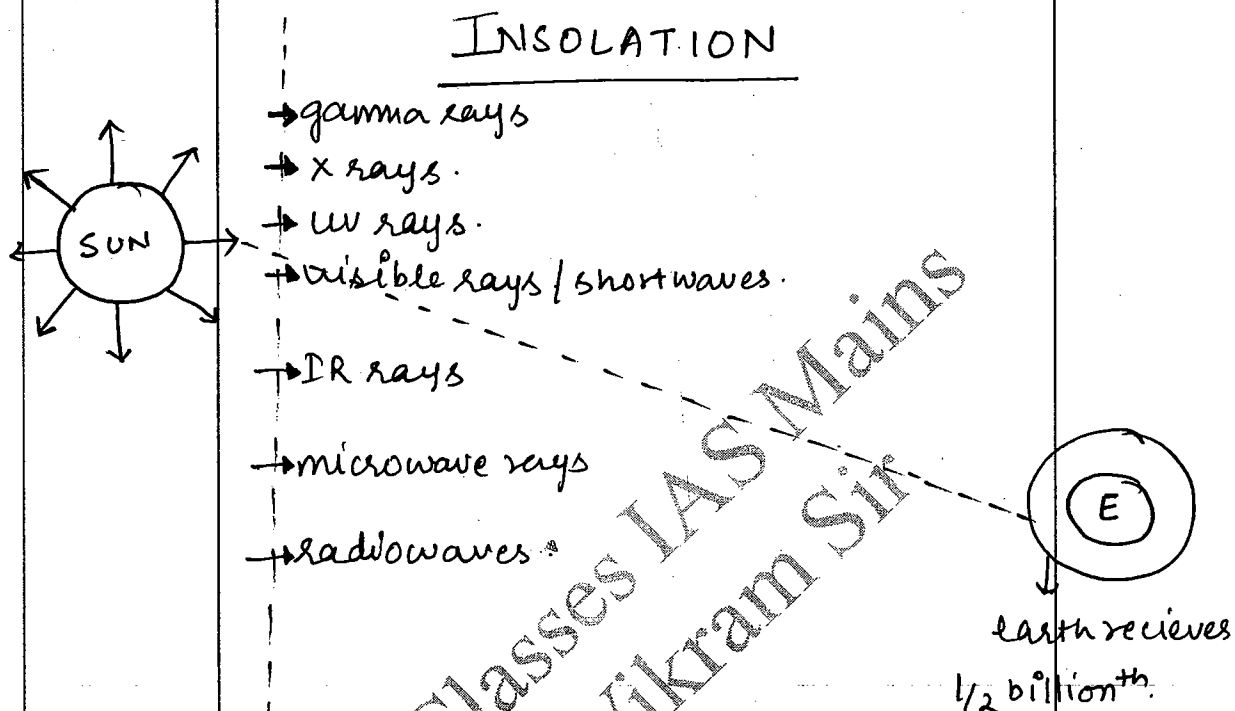 INSOLATION
gamma rays
X rays.
UV rays.
SUN
visible rays / shortwaves.
IR rays
microwave rays
E
radiowaves.
earth recieves
1/2 billionth.
Classes IAS Mains
Vikram Sir